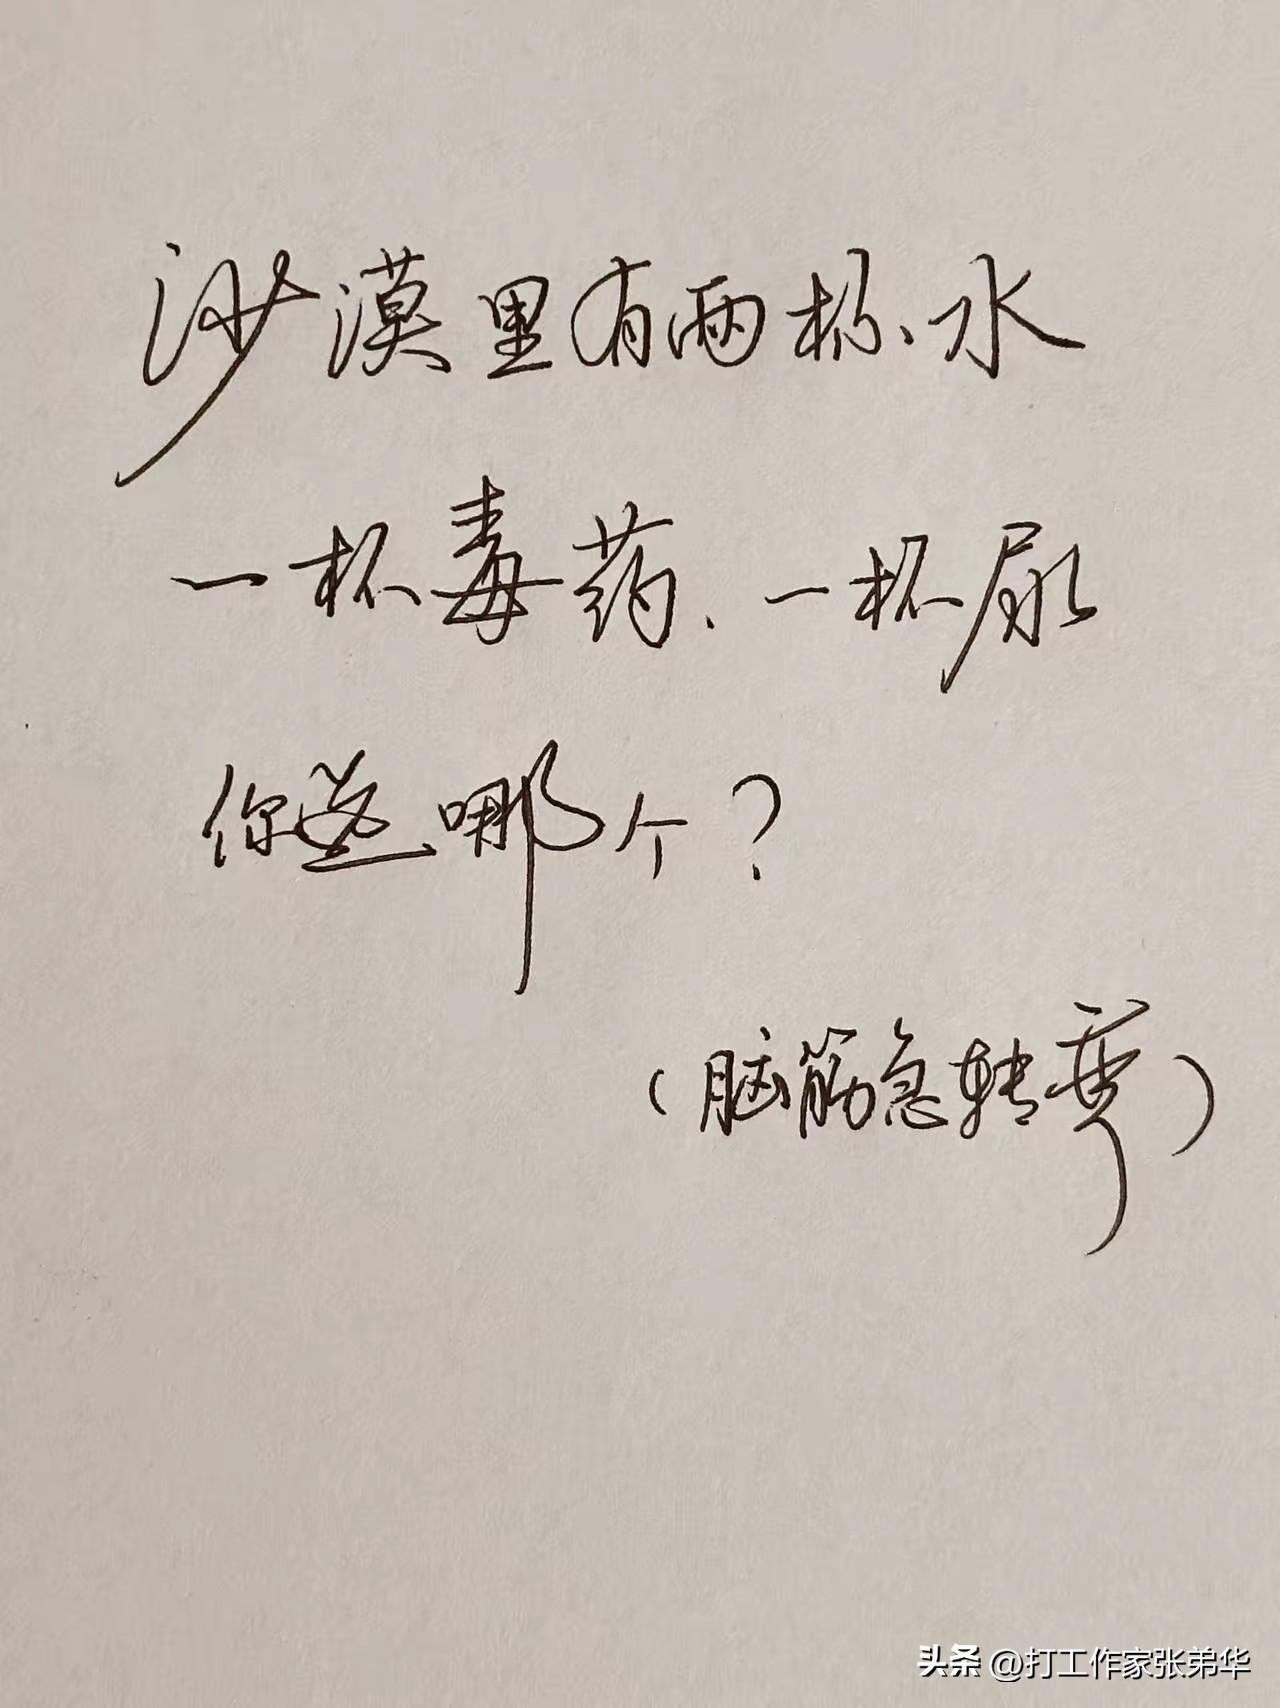 沙漠里有两杯水
一杯毒药、一杯尿
你选哪个？
（脑筋急转弯）
头条 @打工作家张弟华